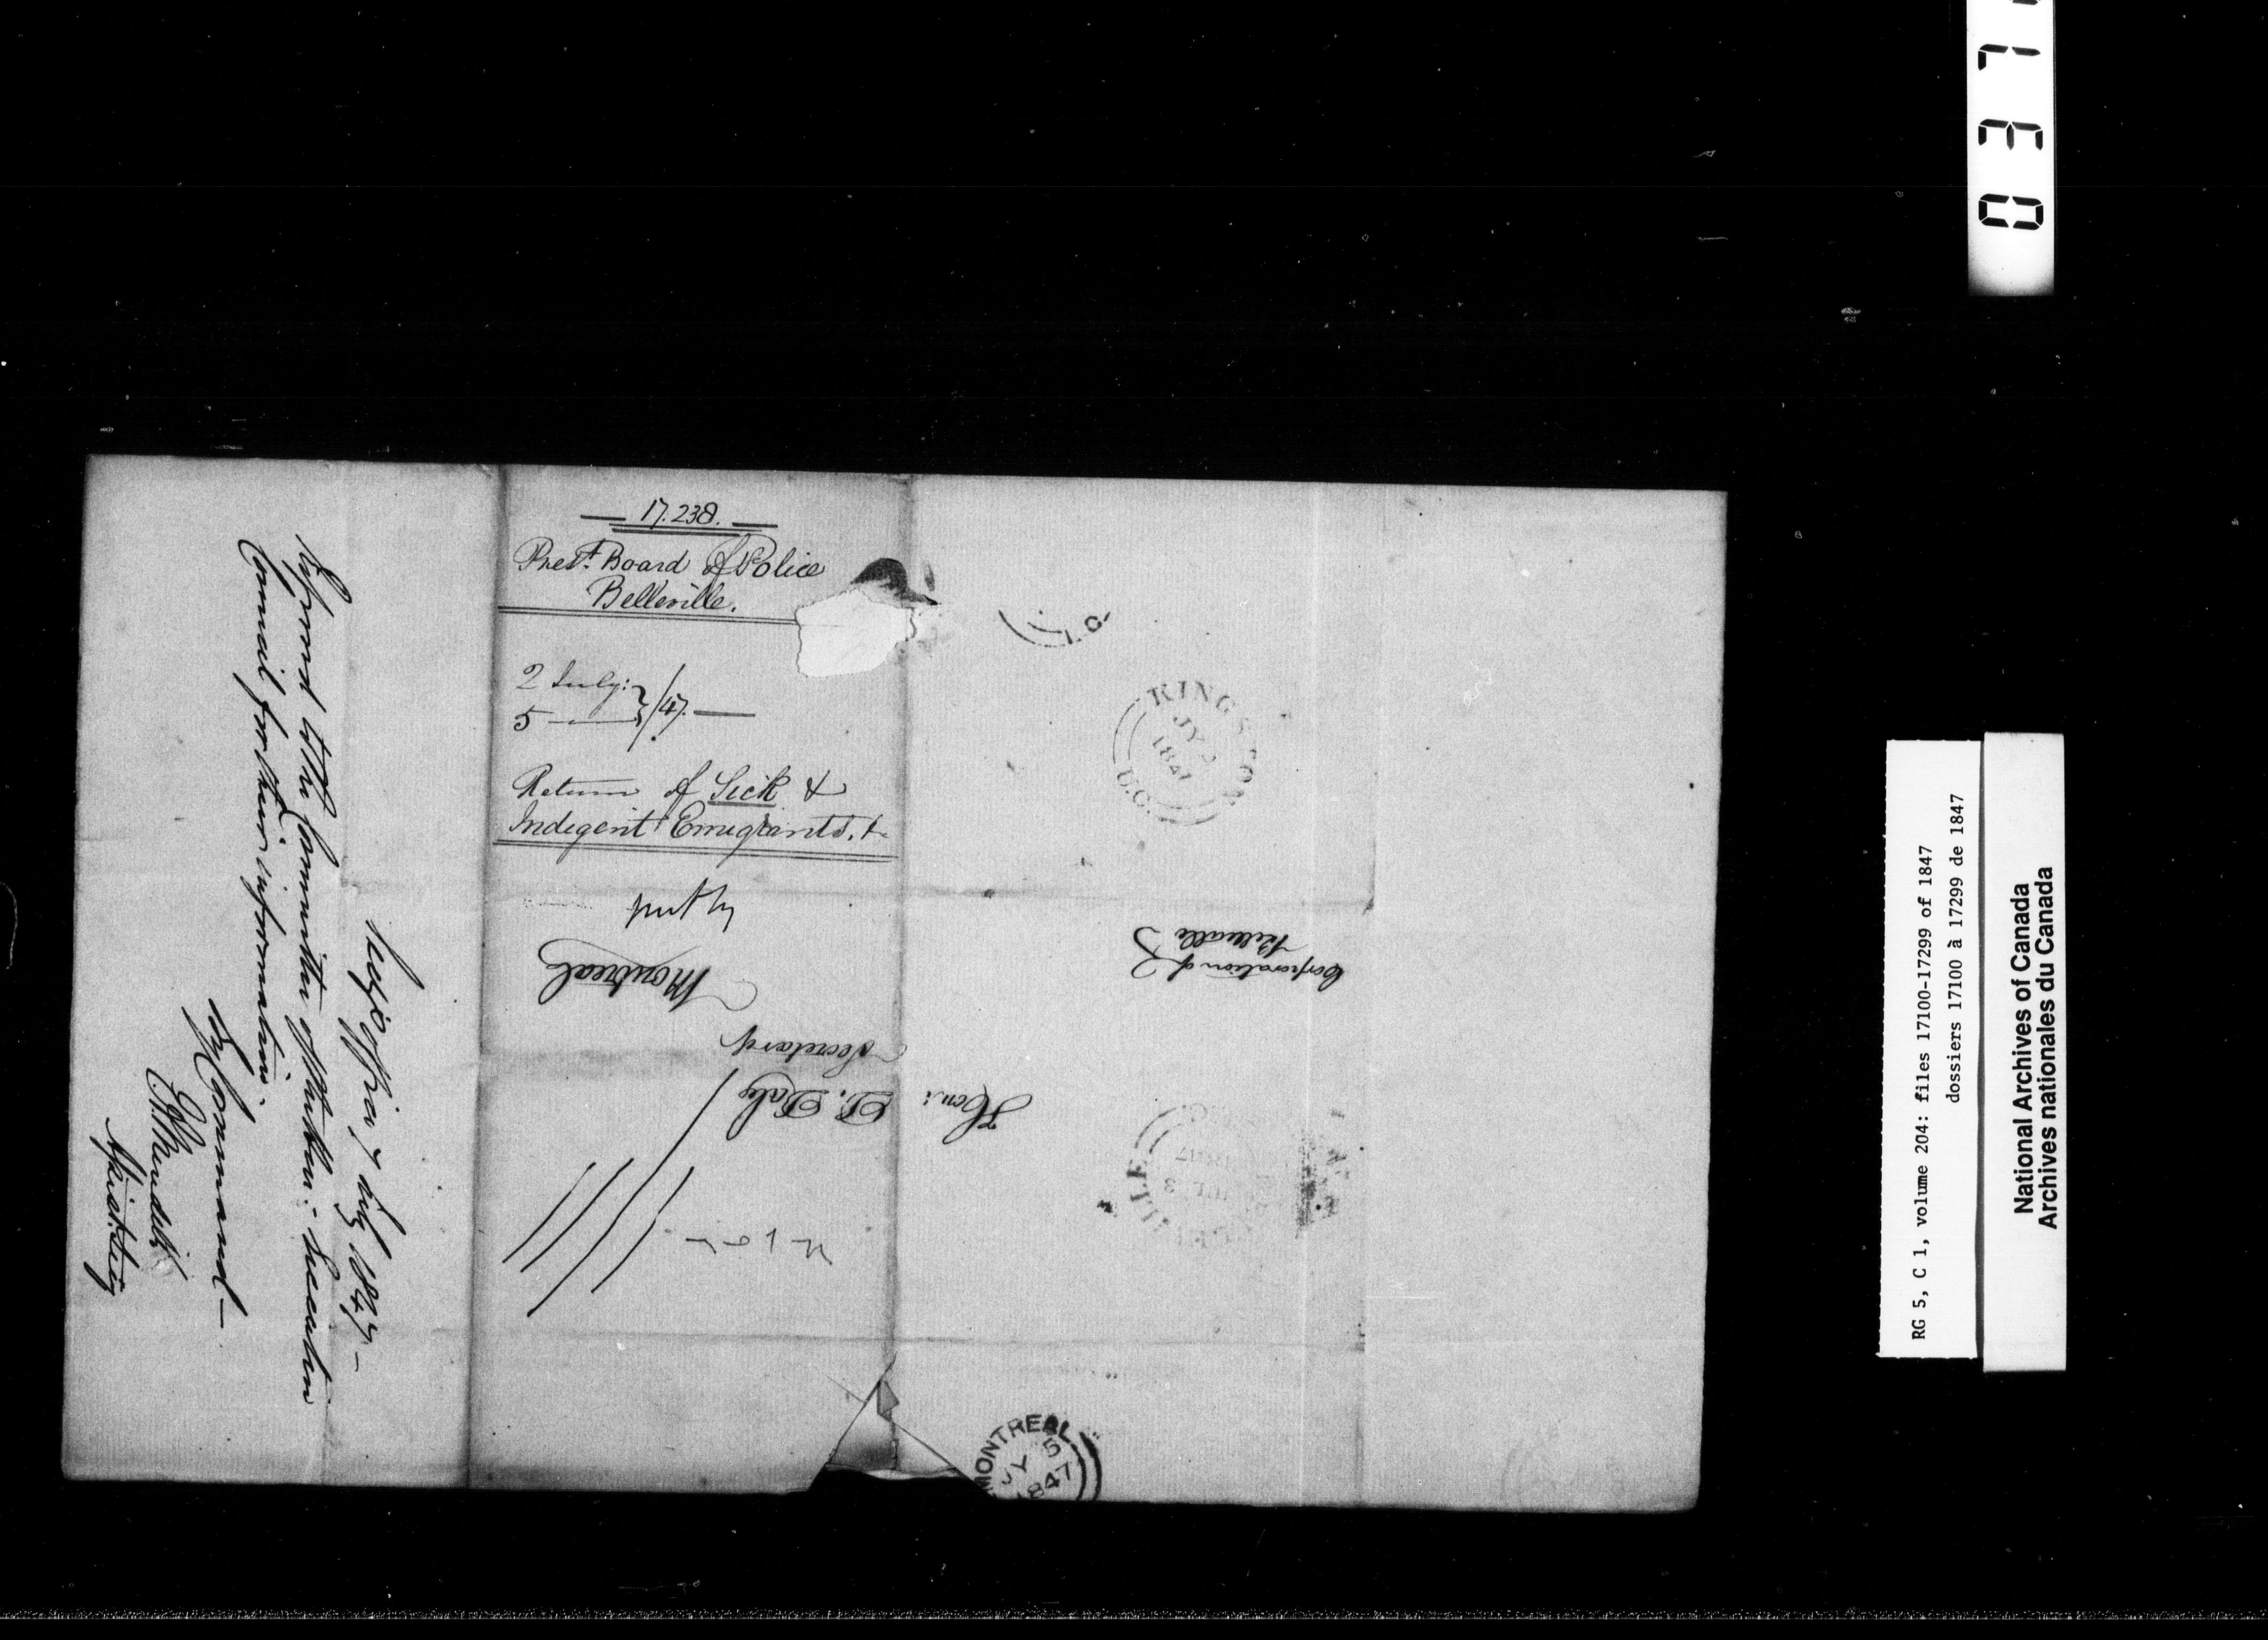 17.238.
Prest. Board of Police
Belleville.
2 July:
5 — } /47.
Return of Sick &
Indigent Emigrants. &
Montreal
Secretary
Hon: D. Daly
Corporation of
Belleville
KINGSTON
JY
1847
U.C.
MONTREAL
JY 5
1847
Secy's Office 7 July 1847 —
Referred to the Committee of the Hon: Executive
Council for their information.
By Command —
0 3 7
RG 5, C 1, volume 204: files 17100-17299 of 1847
dossiers 17100 à 17299 de 1847
National Archives of Canada
Archives nationales du Canada